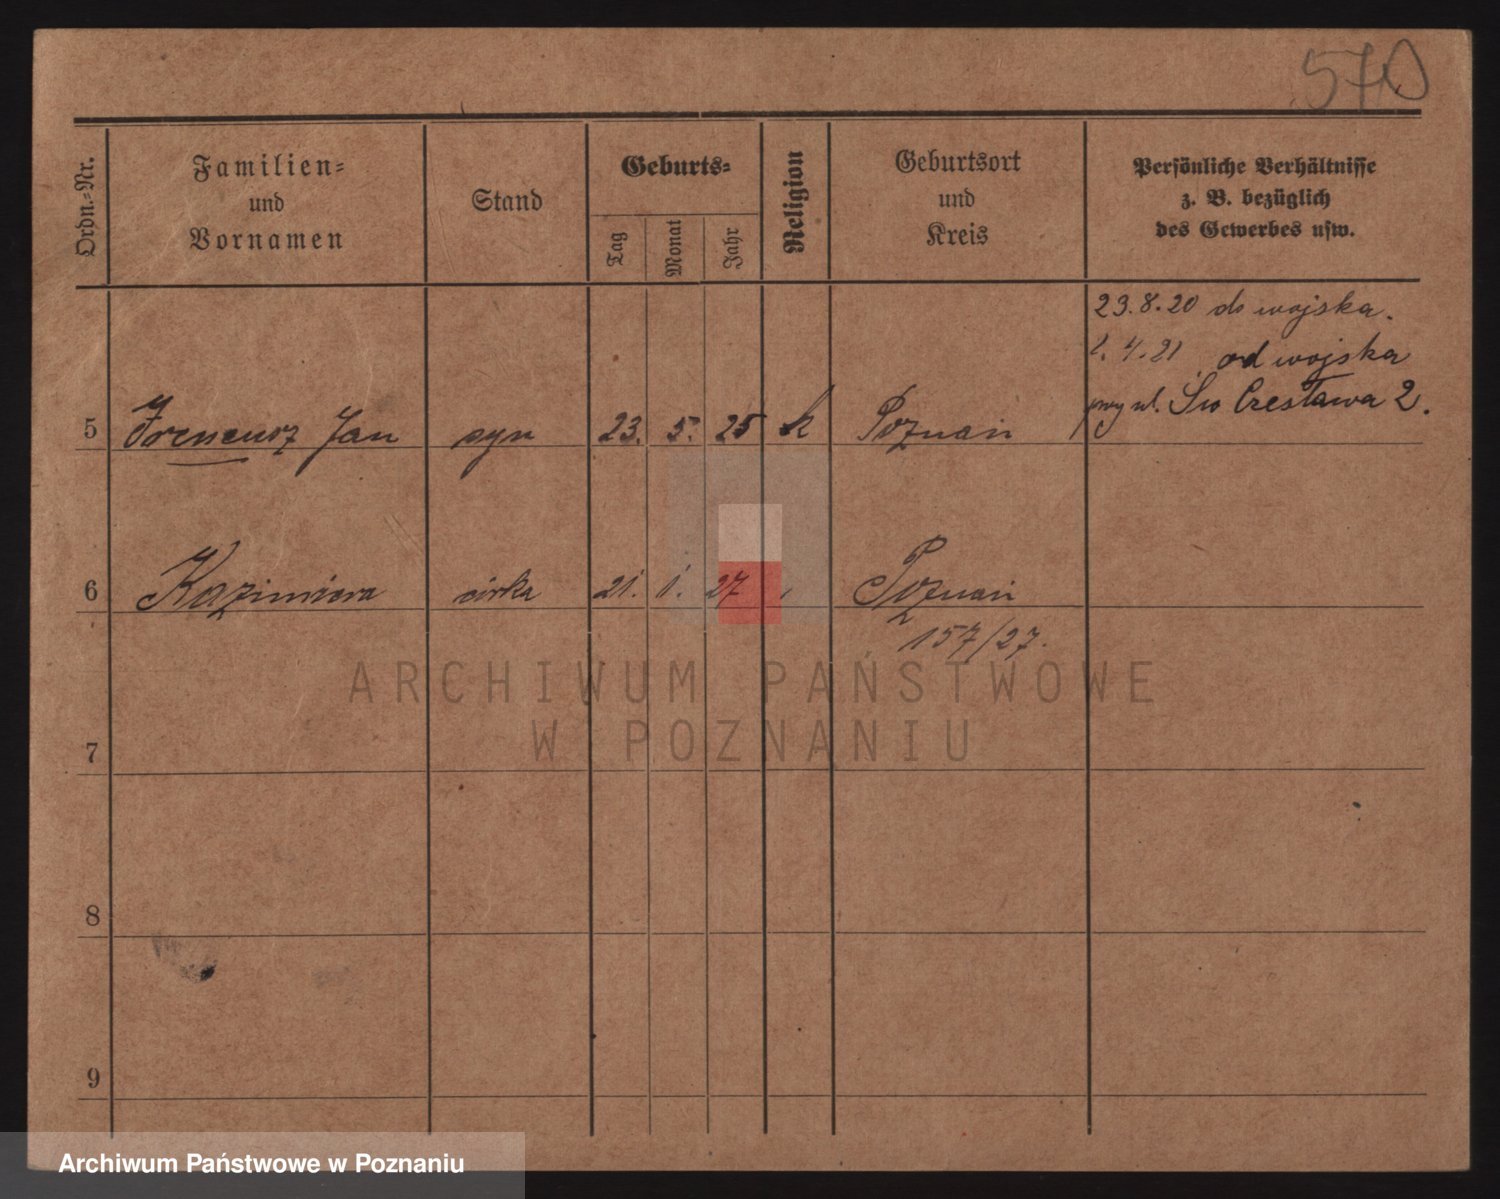 570
Ordn.-Nr.
Familien-
und
Vornamen
Stand
Geburts-
Tag
Monat
Jahr
Religion
Geburtsort
und
Kreis
Persönliche Verhältnisse
z. B. bezüglich
des Gewerbes usw.
23.8.20 do wojska.
1.4.21 od wojska
przy ul. Św Czesława 2.
5 Ireneusz Jan syn 23. 5. 25 k Poznań
6 Kazimiera córka 21. 1. 27 Poznań
157/27.
ARCHIWUM PAŃSTWOWE
W POZNANIU
7
8
9
Archiwum Państwowe w Poznaniu